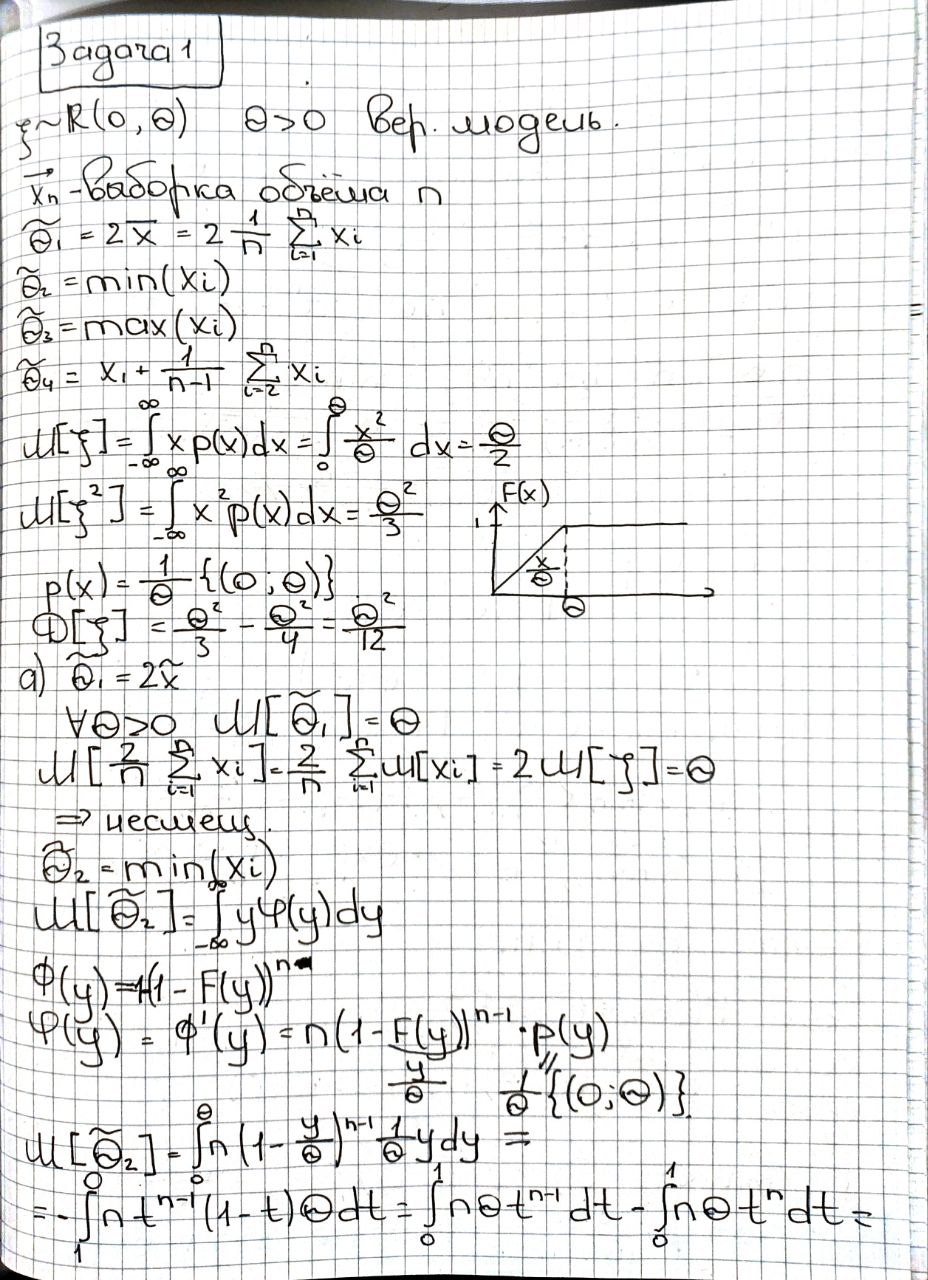 Задача 1
ξ ~ R(0, Θ)   Θ > 0   Вер. модель.
x⃗ₙ - выборка объёма n
Θ̃₁ = 2x̄ = 2 1/n Σ_{i=1}^{n} xᵢ
Θ̃₂ = min(xᵢ)
Θ̃₃ = max(xᵢ)
Θ̃₄ = x₁ + 1/(n-1) Σ_{i=2}^{n} xᵢ
M[ξ] = ∫_{-∞}^{∞} x p(x) dx = ∫_{0}^{Θ} x²/Θ dx = Θ/2
M[ξ²] = ∫_{-∞}^{∞} x² p(x) dx = Θ²/3
F(x)
1
x/Θ
Θ
p(x) = 1/Θ {(0; Θ)}
D[ξ] = Θ²/3 - Θ²/4 = Θ²/12
а) Θ̃₁ = 2x̃
∀Θ>0   M[Θ̃₁] = Θ
M[2/n Σ_{i=1}^{n} xᵢ] = 2/n Σ_{i=1}^{n} M[xᵢ] = 2M[ξ] = Θ
⇒ несмещ.
Θ̃₂ = min(xᵢ)
M[Θ̃₂] = ∫_{-∞}^{∞} y φ(y) dy
Φ(y) = 1-(1 - F(y))ⁿ
φ(y) = Φ'(y) = n(1 - F(y))ⁿ⁻¹ · p(y)
y/Θ   1/Θ {(0; Θ)}
M[Θ̃₂] = ∫_{0}^{Θ} n(1 - y/Θ)ⁿ⁻¹ 1/Θ y dy =
= -∫_{1}^{0} n tⁿ⁻¹ (1-t) Θ dt = ∫_{0}^{1} nΘ tⁿ⁻¹ dt - ∫_{0}^{1} nΘ tⁿ dt =